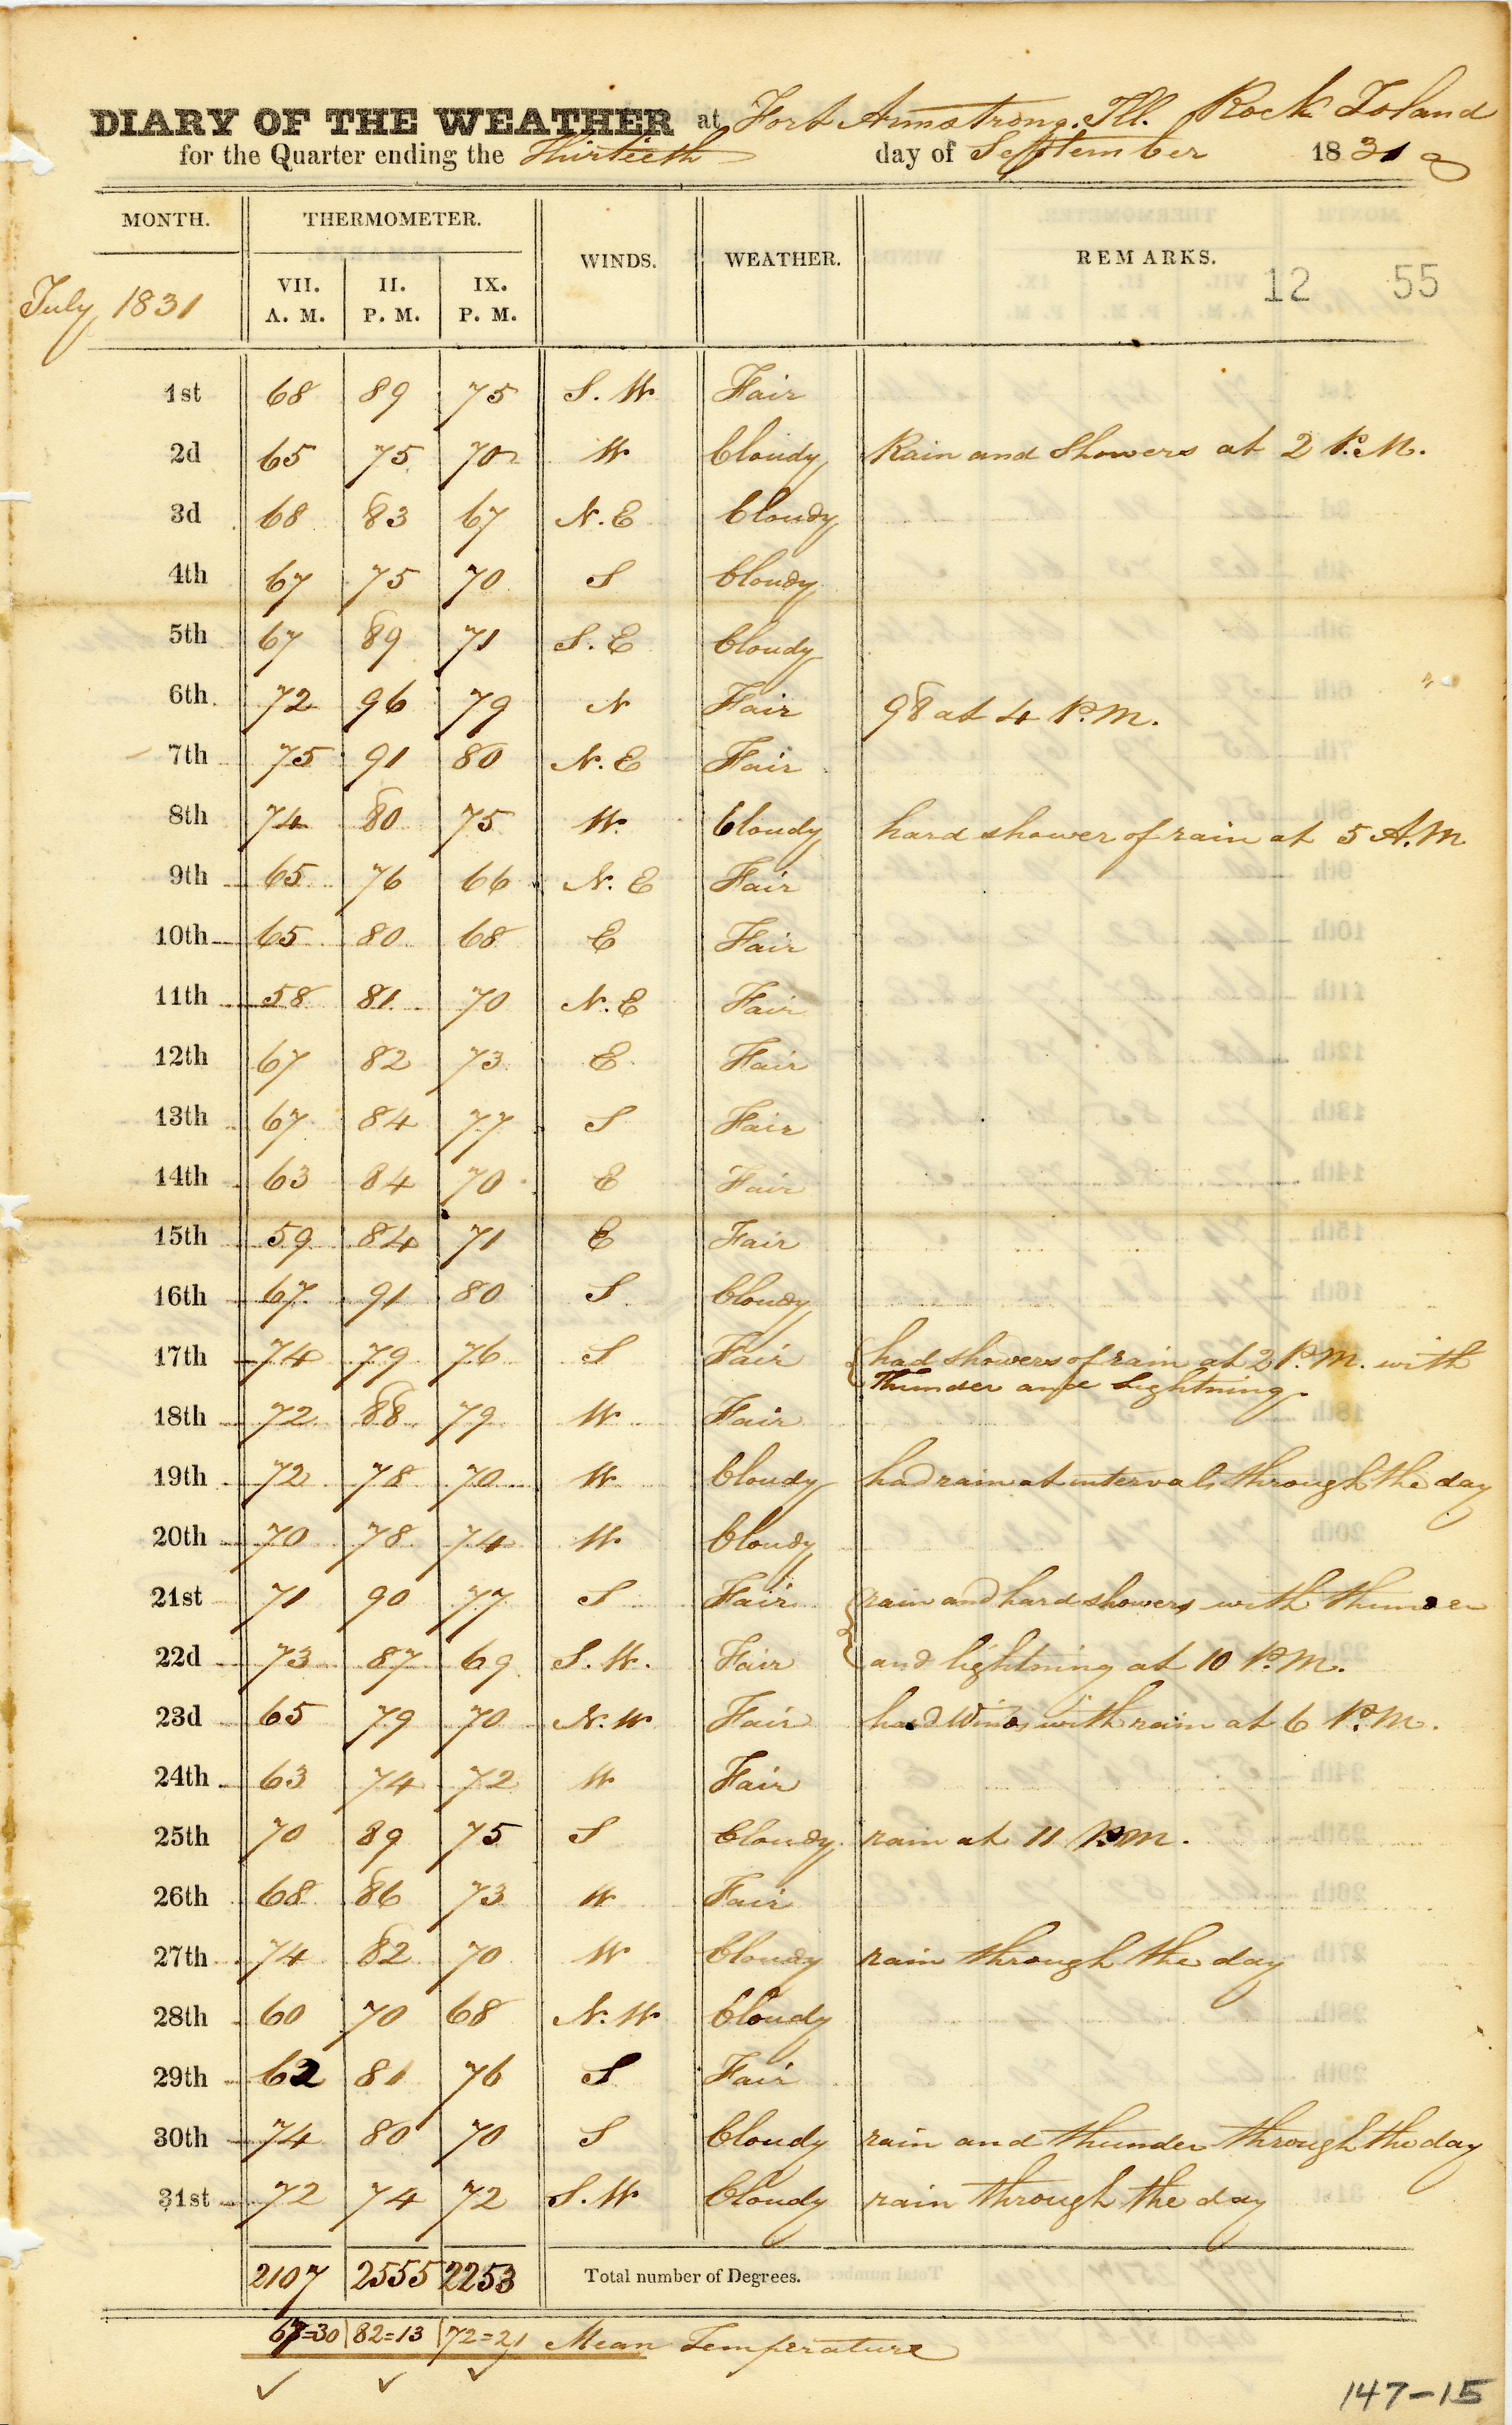 DIARY OF THE WEATHER at Fort Armstrong. Ill. Rock Island
for the Quarter ending the Thirtieth day of September 1831
MONTH. THERMOMETER. WINDS. WEATHER. REMARKS.
12 55
July 1831 VII. A. M. II. P. M. IX. P. M.
1st 68 89 75 S. W Fair
2d 65 75 70 W Cloudy Rain and Showers at 2 P. M.
3d 68 83 67 N. E Cloudy
4th 67 75 70 S Cloudy
5th 67 89 71 S. E Cloudy
6th 72 96 79 N Fair 98 at 4 P. M.
7th 75 91 80 N. E Fair
8th 74 80 75 W. Cloudy hard shower of rain at 5 A. M
9th 65 76 66 N. E Fair
10th 65 80 68 E Fair
11th 58 81 70 N. E Fair
12th 67 82 73 E Fair
13th 67 84 77 S Fair
14th 63 84 70 E Fair
15th 59 84 71 E Fair
16th 67 91 80 S Cloudy
17th 74 79 76 S Fair had showers of rain at 2 P. M. with
Thunder and Lightning.
18th 72 88 79 W Fair
19th 72 78 70 W Cloudy had rain at intervals through the day
20th 70 78 74 W Cloudy
21st 71 90 77 S Fair rain and hard showers with thunder
22d 73 87 69 S. W. Fair and lightning at 10 P. M.
23d 65 79 70 N. W Fair had Winds with rain at 6 P. M.
24th 63 74 72 W Fair
25th 70 89 75 S Cloudy rain at 11 P. M.
26th 68 86 73 W Fair
27th 74 82 70 W Cloudy rain through the day
28th 60 70 68 N. W Cloudy
29th 62 81 76 S Fair
30th 74 80 70 S Cloudy rain and thunder through the day
31st 72 74 72 S. W Cloudy rain through the day
2107 2555 2253 Total number of Degrees.
67=30 82=13 72=21 Mean Temperature
147-15